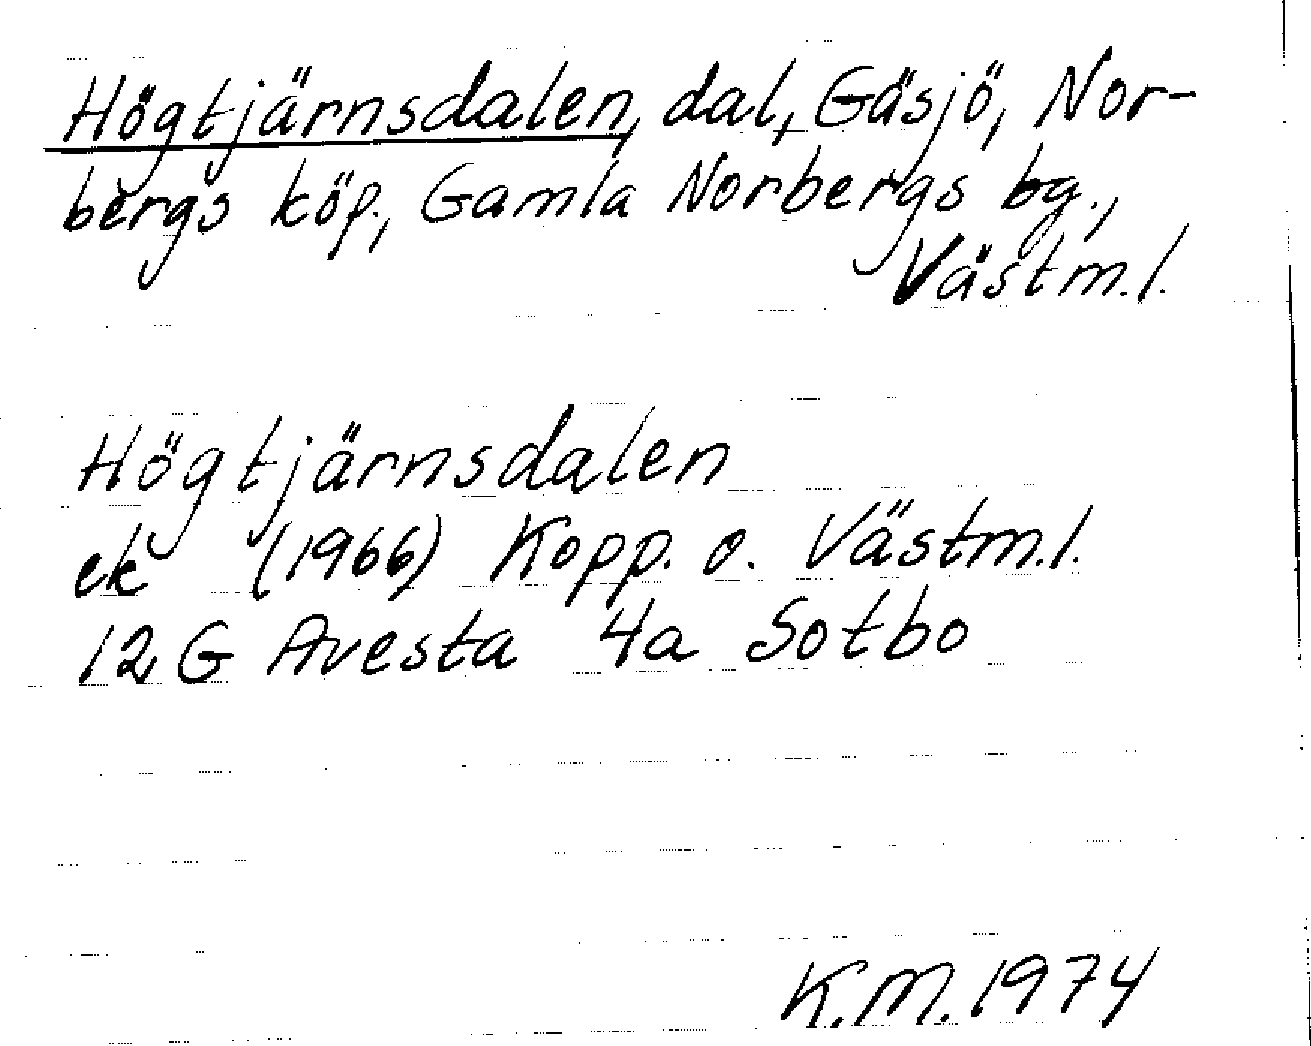 Högtjärnsdalen, dal, Gäsjö, Nor-
bergs köp., Gamla Norbergs bg.,
Västm.l.
Högtjärnsdalen
ek (1966) Kopp. o. Västm.l.
12 G Avesta 4a Sotbo
K.M. 1974